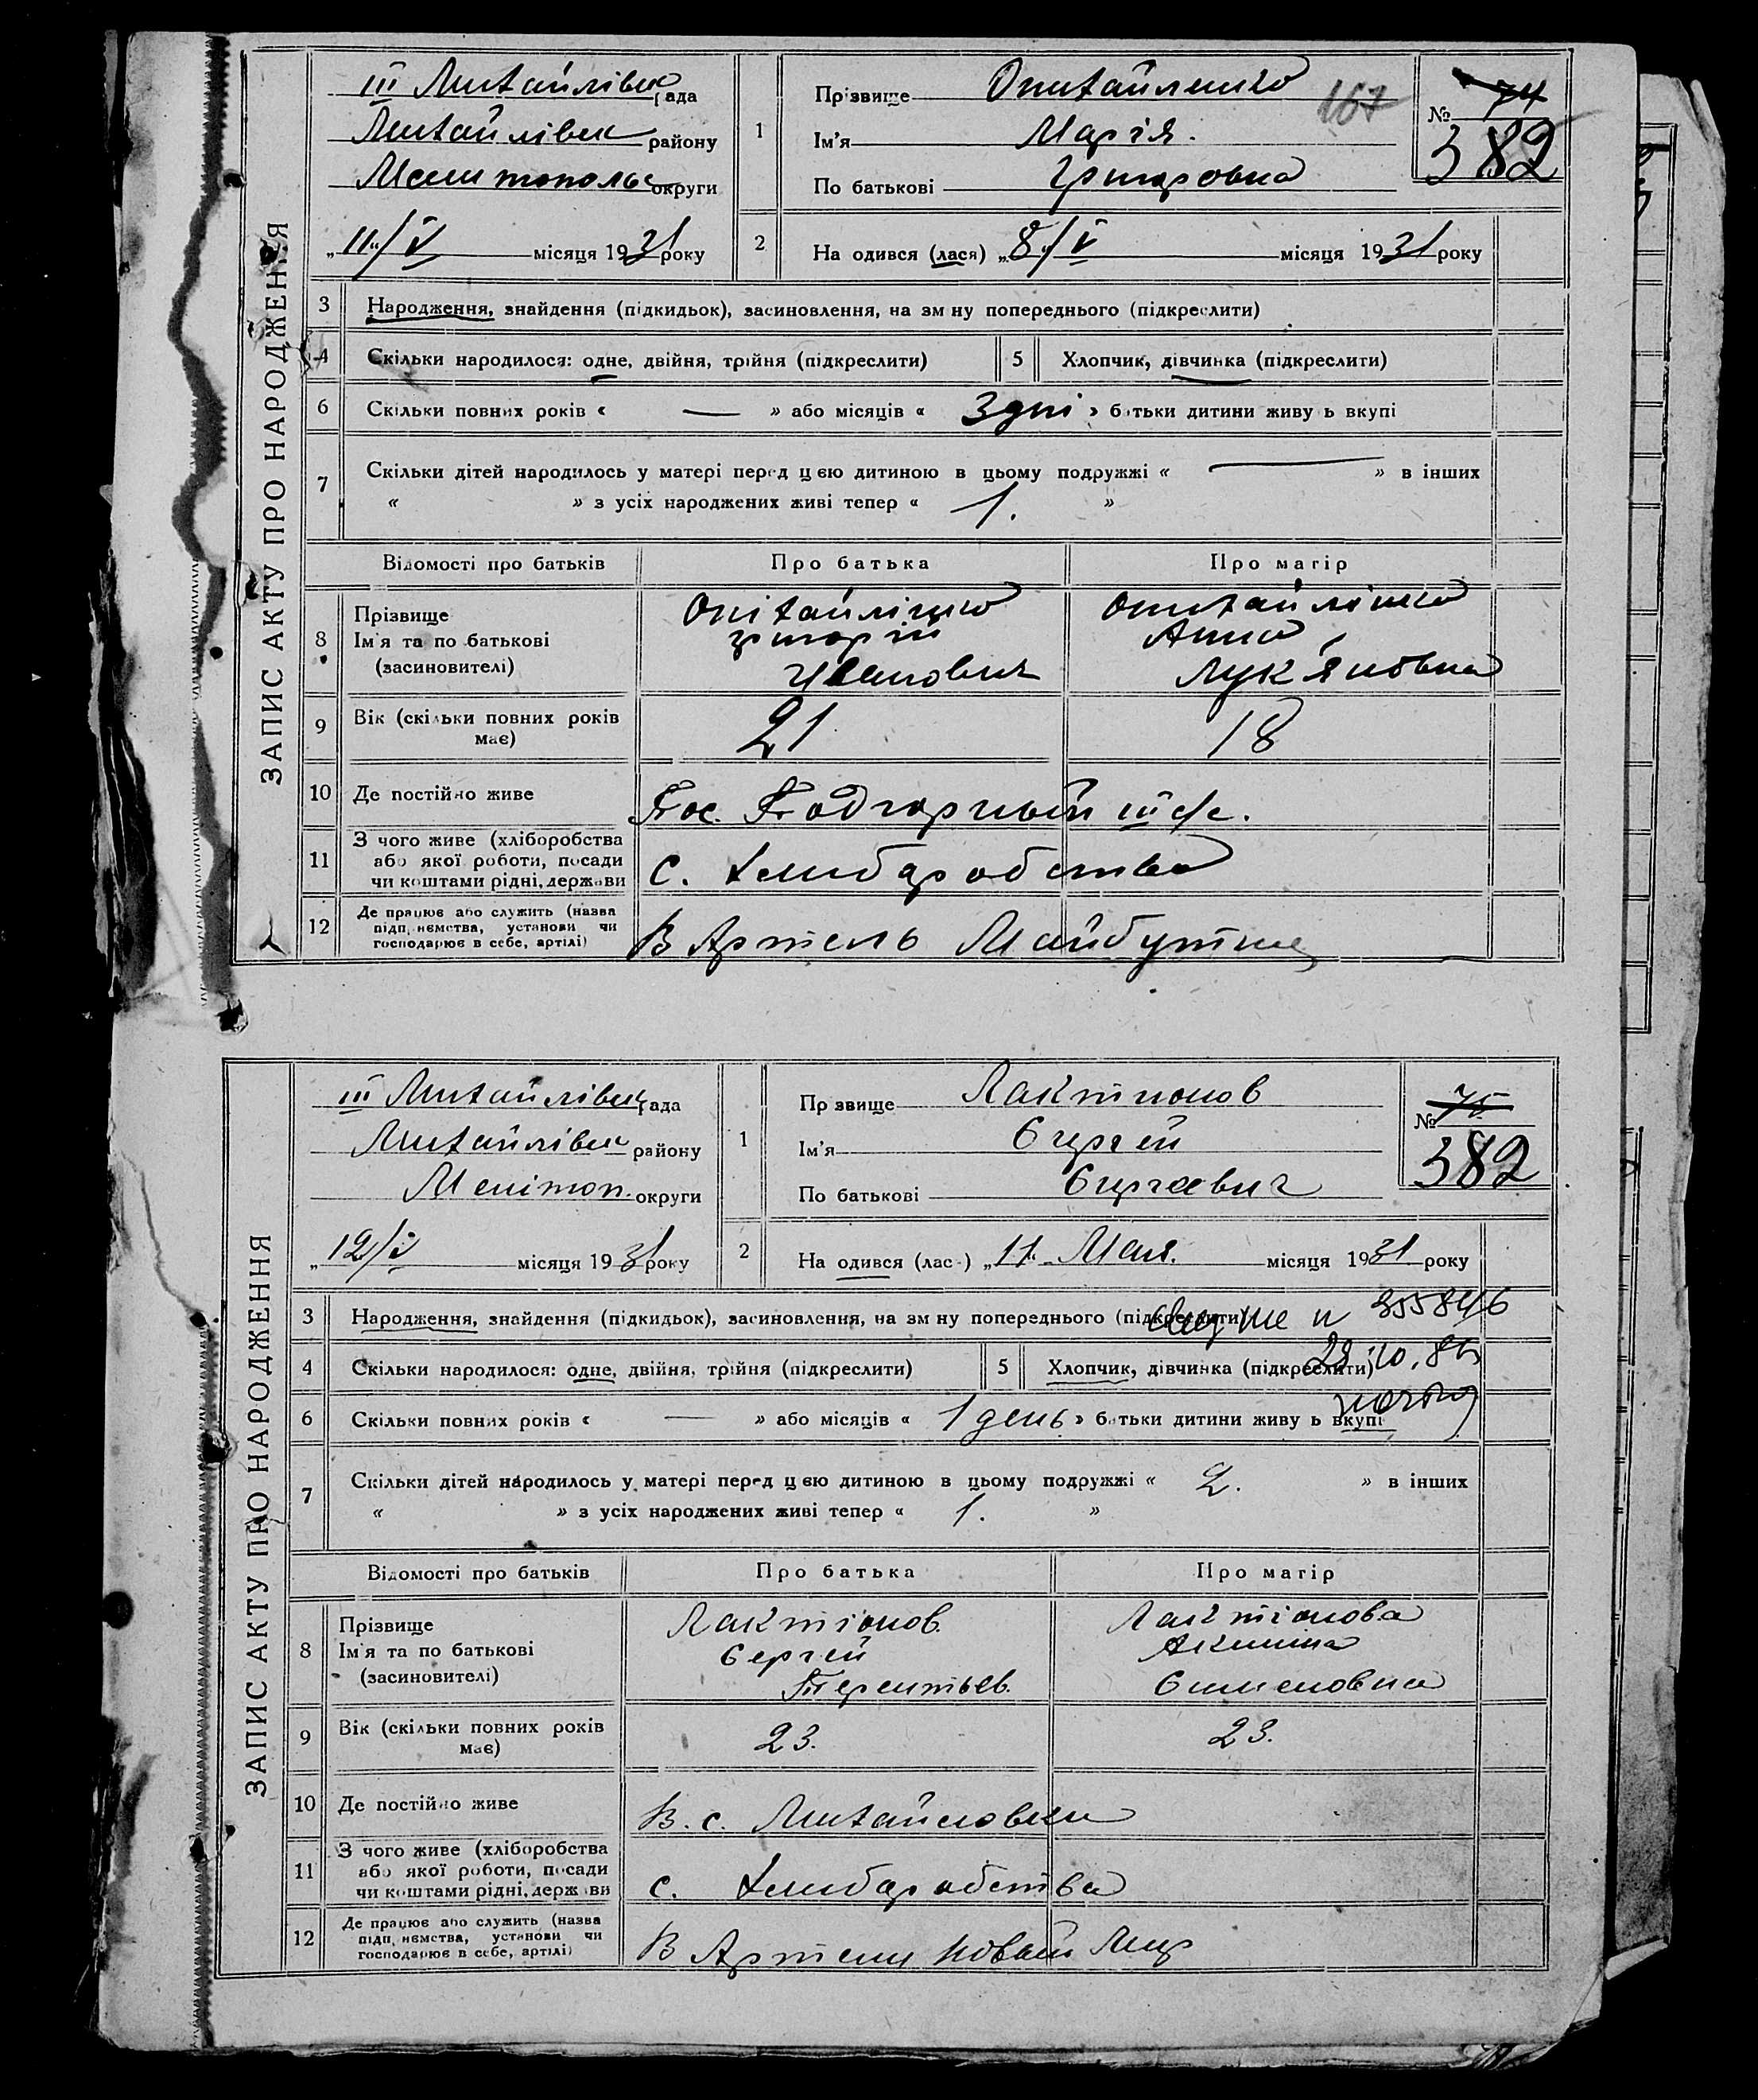 ЗАПИС АКТУ ПРО НАРОДЖЕННЯ
III Михайлівск рада
Михайлівск району
Мелитопольс округи
„11“/V місяця 1931 року
1 Прізвище Опихайленко
167
Ім'я Марія.
По батькові Григоровна
№ 74
382
2 На одився (лася) „8“/V місяця 1931 року
3 Народження, знайдення (підкидьок), засиновлення, на зм ну попереднього (підкреслити)
4 Скільки народилося: одне, двійня, трійня (підкреслити) 5 Хлопчик, дівчинка (підкреслити)
6 Скільки повних років « — » або місяців « 3 дні » батьки дитини живу ь вкупі
7 Скільки дітей народилось у матері перед цею дитиною в цьому подружжі « — » в інших
« » з усіх народжених живі тепер « 1. »
Відомості про батьків Про батька Про матір
8 Прізвище Ім'я та по батькові (засиновителі)
Опіхайлінко Григорій Иванович
Опихайлінко Анна Лук'яновна
9 Вік (скільки повних років має) 21 18
10 Де постійно живе Пос. Подгорный III с/с.
11 З чого живе (хліборобства або якої роботи, посади чи коштами рідні, держави С. Хлибаробства
12 Де працює або служить (назва підп, немства, установи чи господарює в себе, артілі) В Артель Майбутне
ЗАПИС АКТУ ПРО НАРОДЖЕННЯ
III Михайлівск рада
Михайлівск району
Мелітоп. округи
„12“/V місяця 1931 року
1 Пр звище Лактионов
Ім'я Сергей
По батькові Сергеевич
№ 75
382
2 На одився (лас-) „11“ Мая. місяця 1931 року
3 Народження, знайдення (підкидьок), засиновлення, на зм ну попереднього (підкреслити)
4 Скільки народилося: одне, двійня, трійня (підкреслити) 5 Хлопчик, дівчинка (підкреслити)
6 Скільки повних років « — » або місяців « 1 день » батьки дитини живу ь вкупі
7 Скільки дітей народилось у матері перед цею дитиною в цьому подружжі « 2. » в інших
« » з усіх народжених живі тепер « 1. »
Відомості про батьків Про батька Про матір
8 Прізвище Ім'я та по батькові (засиновителі)
Лактіонов Сергей Терентьев.
Лактіонова Акилина Симеоновна
9 Вік (скільки повних років має) 23. 23.
10 Де постійно живе В. с. Михайловки
11 З чого живе (хліборобства або якої роботи, посади чи коштами рідні, держ ви С. Хлибаробства
12 Де працює або служить (назва підп, немства, установи чи господарює в себе, артілі) В Артели Новый Мир